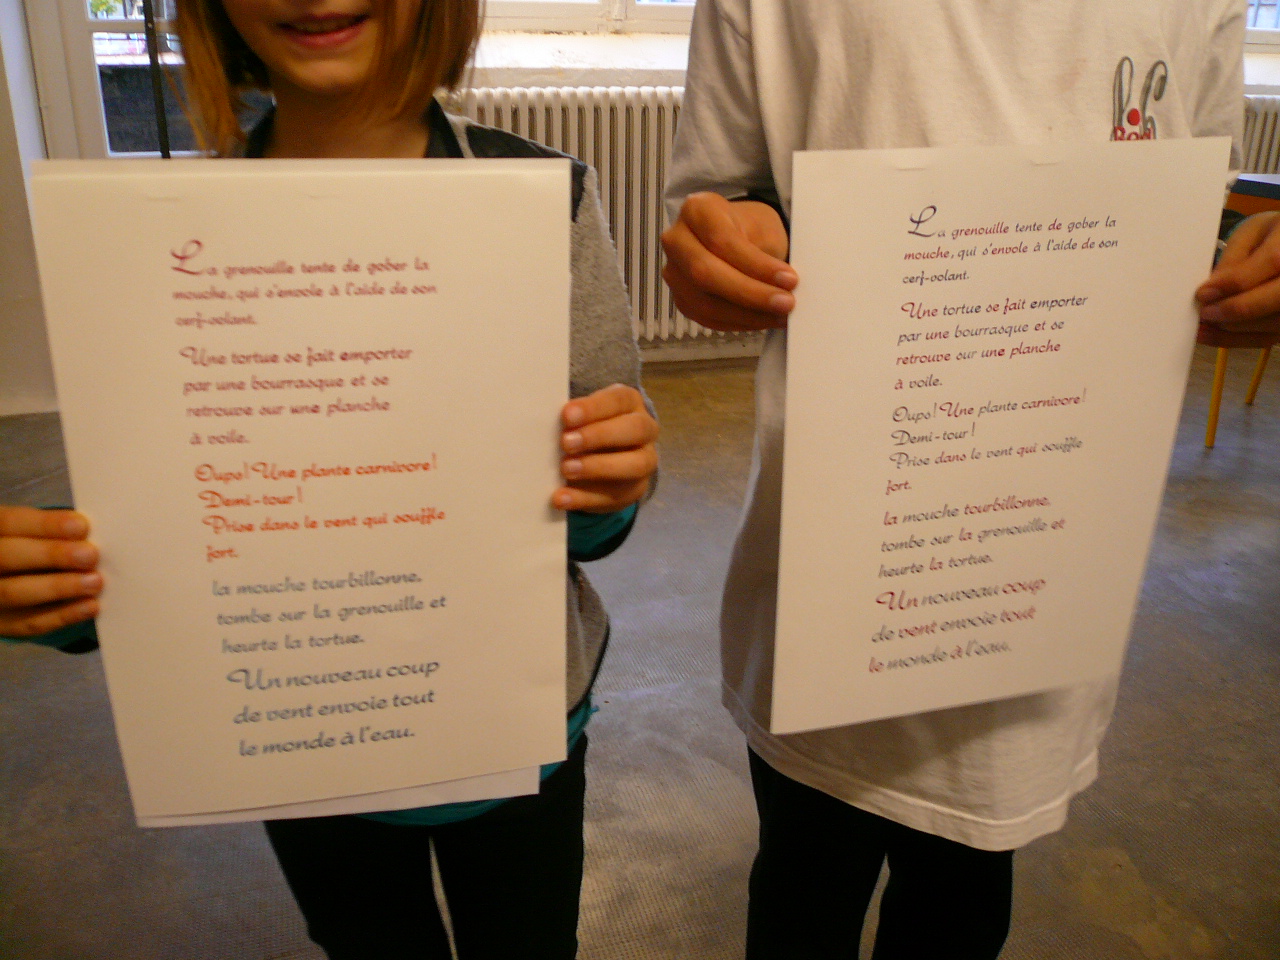 La grenouille tente de gober la
mouche, qui s'envole à l'aide de son
cerf-volant.
Une tortue se fait emporter
par une bourrasque et se
retrouve sur une planche
à voile.
Oups! Une plante carnivore!
Demi-tour!
Prise dans le vent qui souffle
fort.
la mouche tourbillonne,
tombe sur la grenouille et
heurte la tortue.
Un nouveau coup
de vent envoie tout
le monde à l'eau.
La grenouille tente de gober la
mouche, qui s'envole à l'aide de son
cerf-volant.
Une tortue se fait emporter
par une bourrasque et se
retrouve sur une planche
à voile.
Oups! Une plante carnivore!
Demi-tour!
Prise dans le vent qui souffle
fort.
la mouche tourbillonne,
tombe sur la grenouille et
heurte la tortue.
Un nouveau coup
de vent envoie tout
le monde à l'eau.